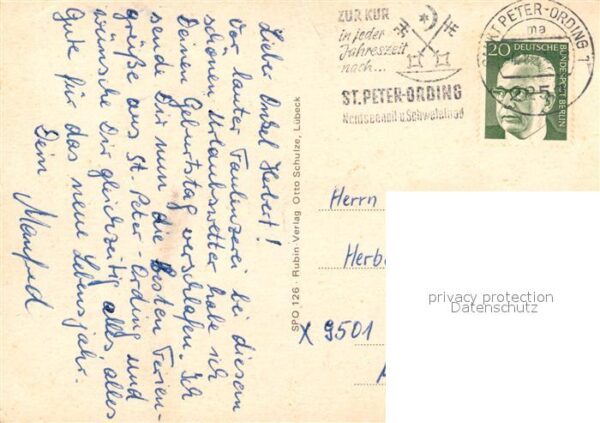 Lieber Onkel Herbert!
Vor lauter Faulenzerei bei diesem
schönen Urlaubswetter habe ich
Deinen Geburtstag verschlafen. Ich
sende Dir nun die besten Ferien-
grüße aus St. Peter-Ording und
wünsche Dir gleichzeitig alles, alles
Gute für das neue Lebensjahr.
Dein Manfred
SPO 126 · Rubin-Verlag Otto Schulze, Lübeck
ZUR KUR
in jeder
Jahreszeit
nach...
ST.PETER-ORDING
Nordseeheil u. Schwefelbad
PETER-ORDING 1
ma
20 DEUTSCHE BUNDESPOST BERLIN
Herrn
Herbe
X 9501
privacy protection
Datenschutz